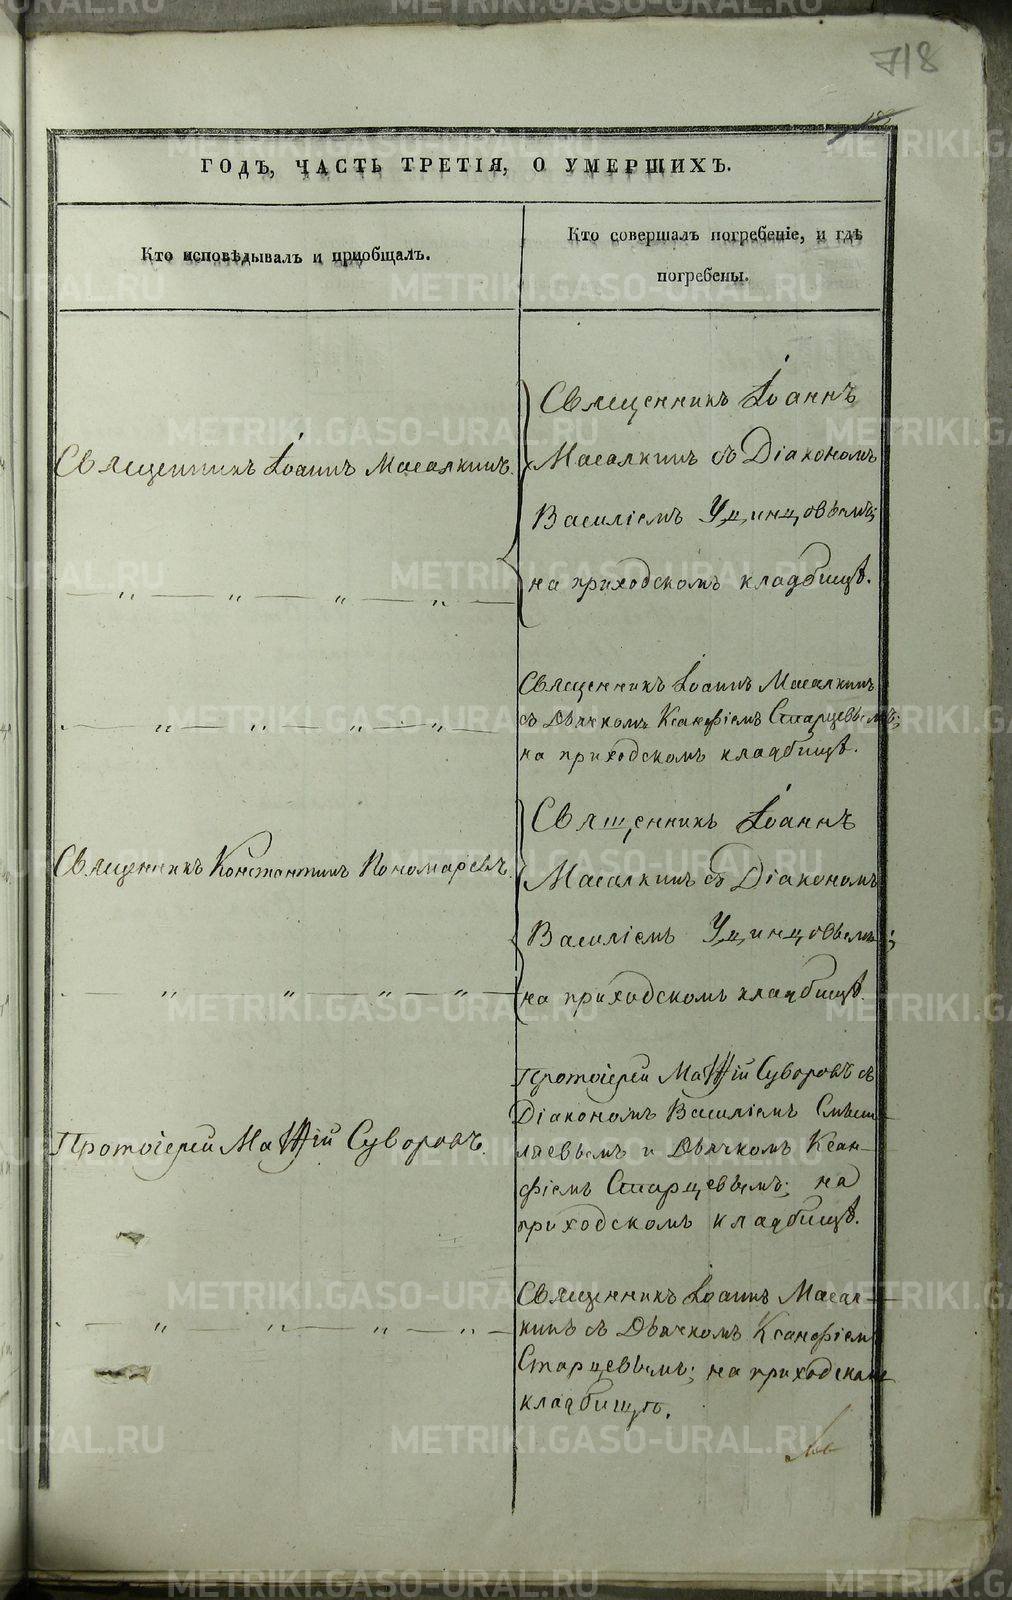 718
ГОДЪ, ЧАСТЬ ТРЕТІЯ, О УМЕРШИХЪ.
Кто исповѣдывалъ и пріобщалъ.
Кто совершалъ погребеніе, и гдѣ
погребены.
Священникъ Іоаннъ Масалкинъ.
Священникъ Іоаннъ
Масалкинъ съ Діакономъ
Василіемъ Удинцовымъ;
на приходскомъ кладбищѣ.
" — " — " — " —
Священникъ Іоаннъ Масалкинъ
съ Дьячкомъ Ксанфіемъ Старцевымъ;
на приходскомъ кладбищѣ.
" — " — " — " —
Священникъ Константинъ Пономаревъ.
Священникъ Іоаннъ
Масалкинъ съ Діакономъ
Василіемъ Удинцовымъ;
на приходскомъ кладбищѣ.
" — " — " — " —
Протоіерей Матѳій Суворовъ.
Протоіерей Матѳій Суворовъ съ
Діакономъ Василіемъ
и Дьячкомъ Ксан-
фіемъ Старцевымъ; на
приходскомъ кладбищѣ.
" — " — " — " —
Священникъ Іоаннъ Масал-
кинъ съ Дьячкомъ Ксанфіемъ
Старцевымъ; на приходскомъ
кладбищѣ.
METRIKI.GASO-URAL.RU